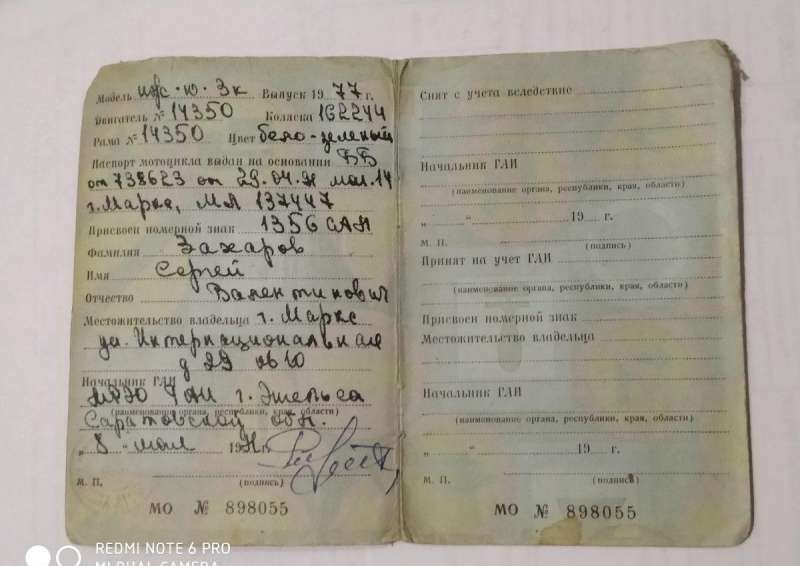 Модель иж-ю-3к Выпуск 1977 г.
Двигатель № 14350 Коляска 162244
Рама № 14350 Цвет бело-зеленый
Паспорт мотоцикла выдан на основании ББ
от 738623 от 29.04. маг. 14
г. Маркс, МЛ 137447
Присвоен номерной знак 1356 САП
Фамилия Захаров
Имя Сергей
Отчество Валентинович
Местожительство владельца г. Маркс
ул. Интернациональная
д 29 кв 10
Начальник ГАИ
МРЭО ГАИ г. Энгельса
(наименование органа, республики, края, области)
Саратовской обл.
„ 8 " мая 19 г.
М. П. (подпись)
МО № 898055
Снят с учета вследствие
Начальник ГАИ
(наименование органа, республики, края, области)
„ " 19 г.
М. П. (подпись)
Принят на учет ГАИ
(наименование органа, республики, края, области)
Присвоен номерной знак
Местожительство владельца
Начальник ГАИ
(наименование органа, республики, края, области)
„ " 19 г.
М. П. (подпись)
МО № 898055
REDMI NOTE 6 PRO
MI DUAL CAMERA